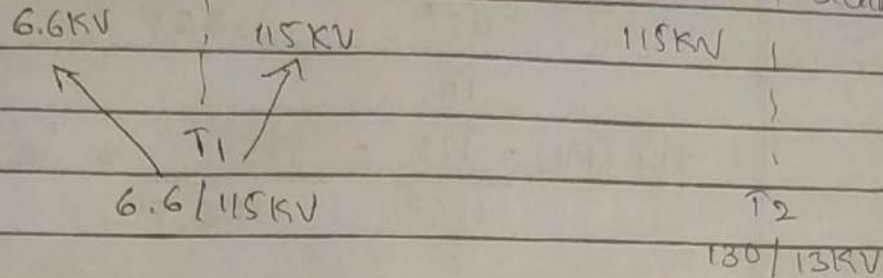 6.6KV 115KV 115KV
T1
6.6/115KV T2
130/13KV